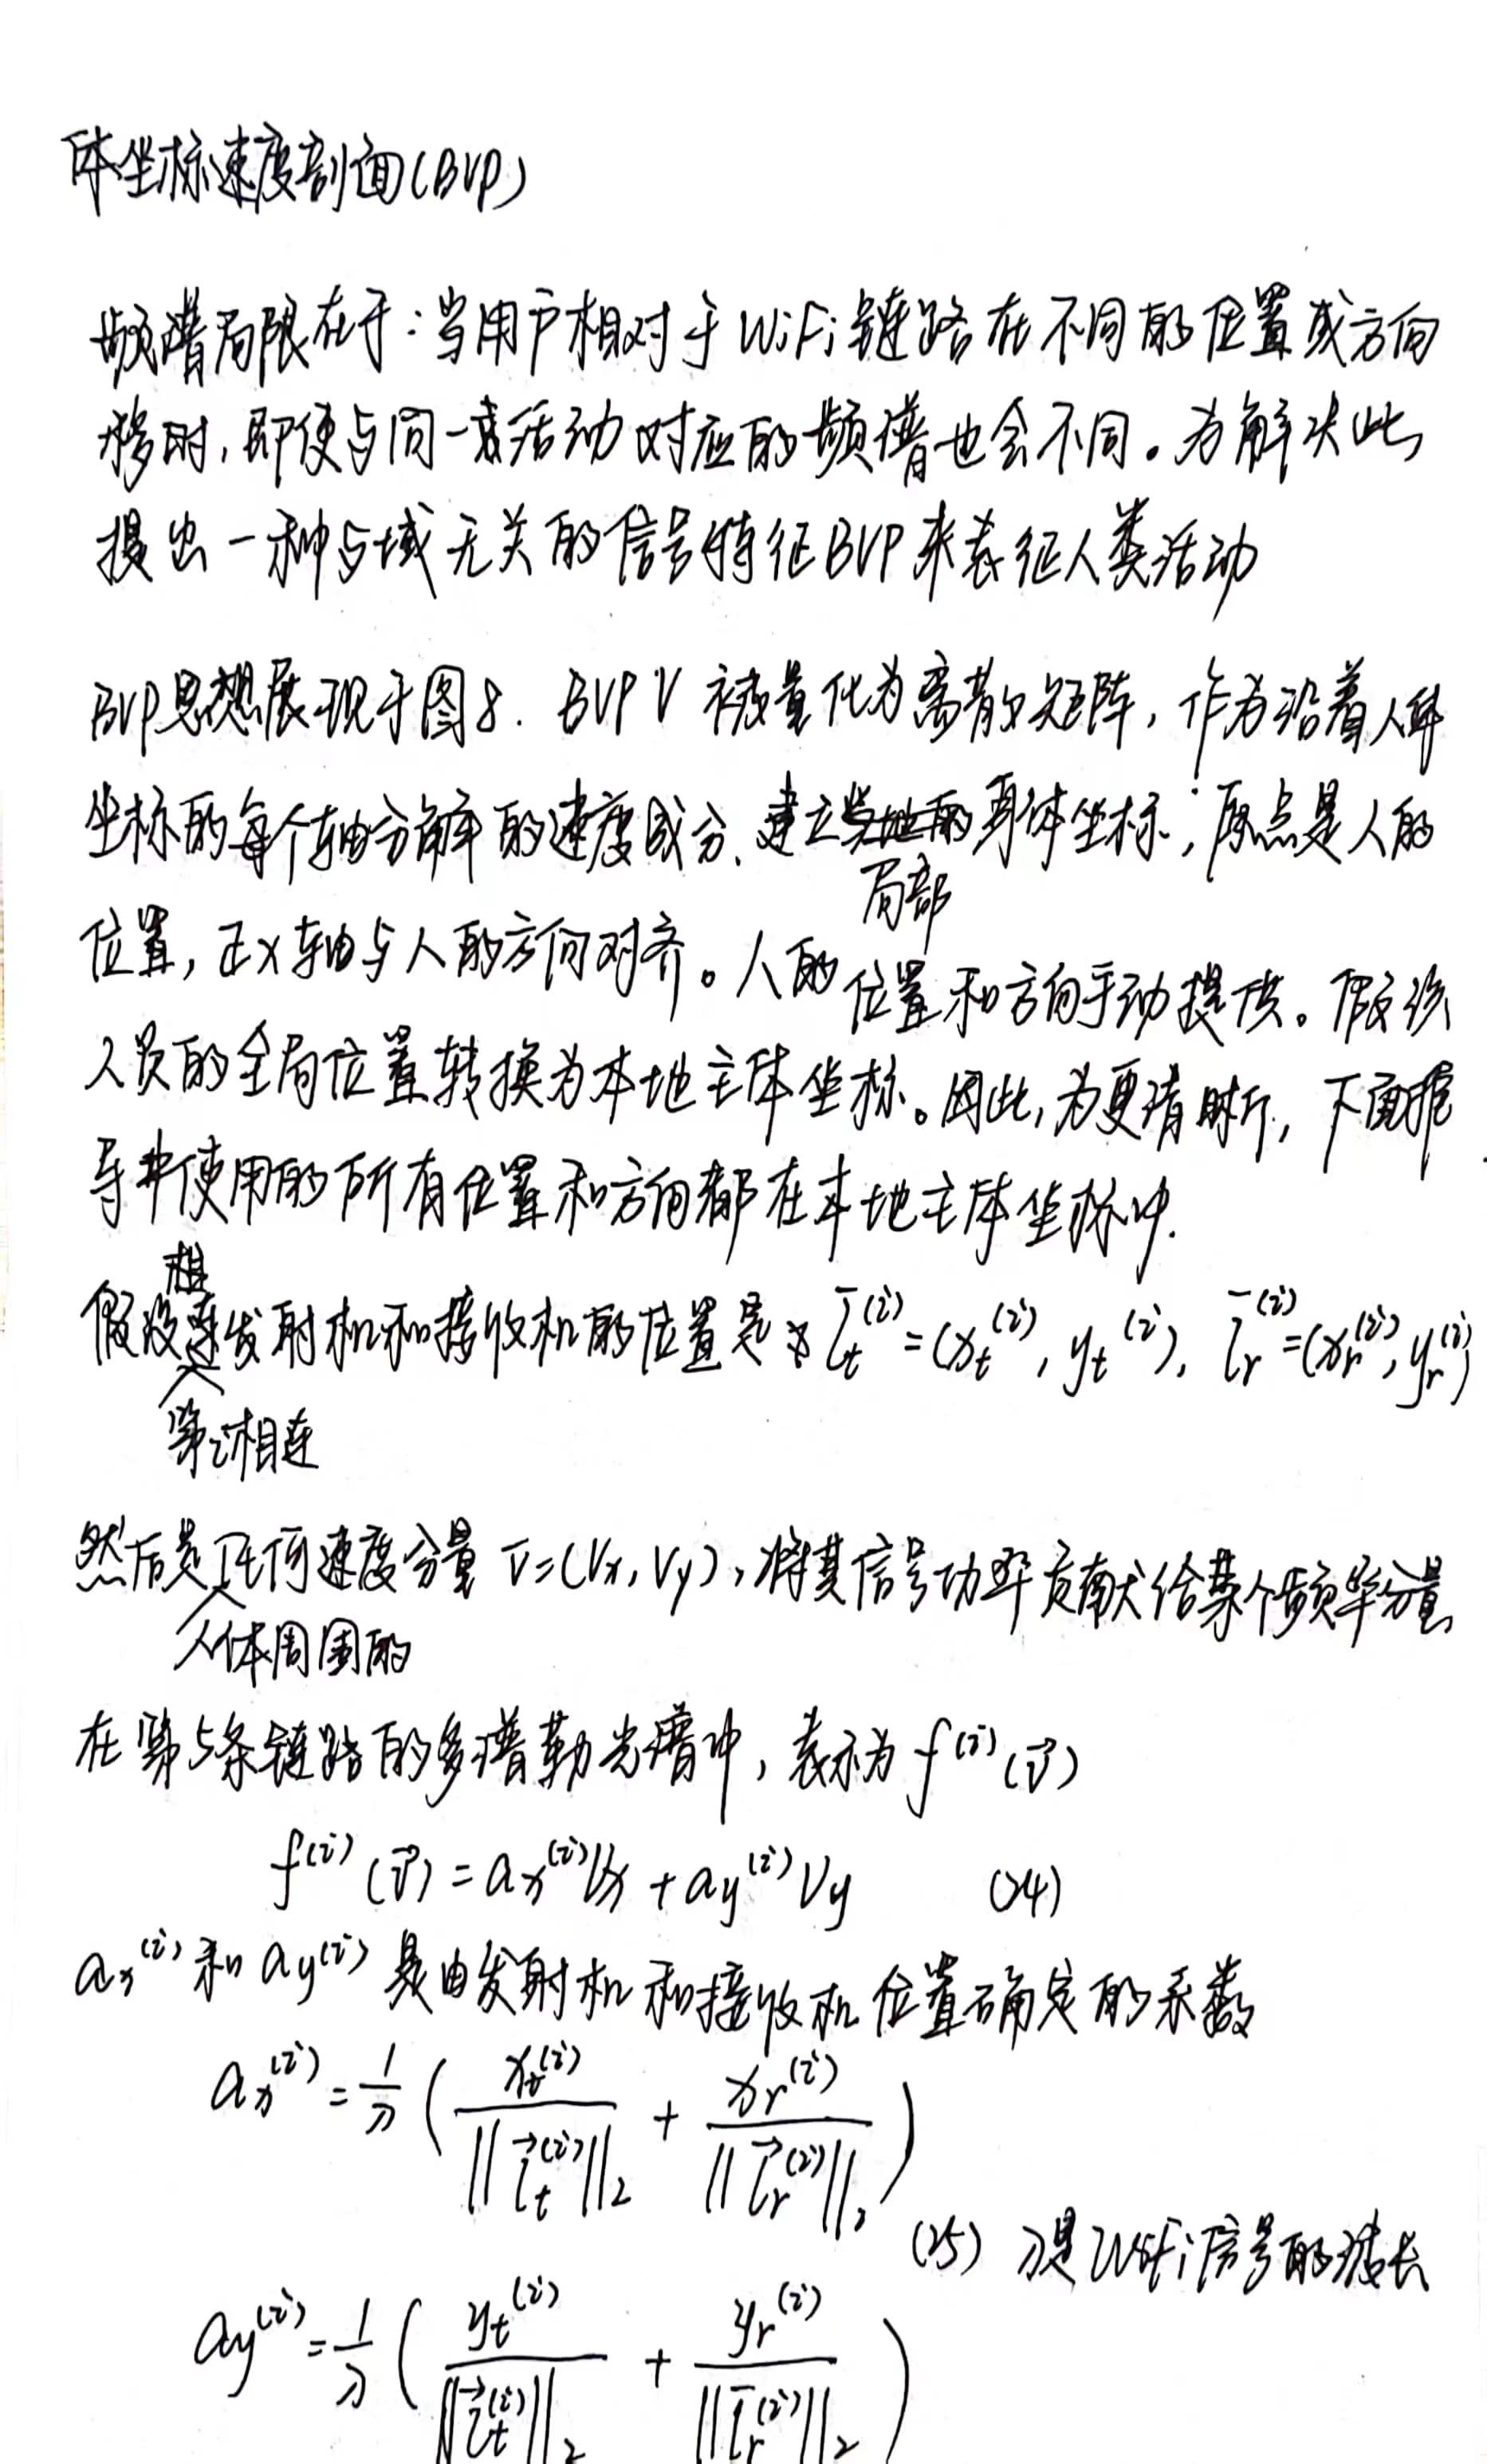 体坐标速度剖面(BVP)
频谱局限在于:当用户相对于WiFi链路在不同的位置或方向
移时,即使与同一类活动对应的频谱也会不同。为解决此
提出一种与域无关的信号特征BVP来表征人类活动
BVP思想展现于图8. BVP V 被量化为离散矩阵,作为沿着人体
坐标的每个轴分解的速度成分、建立的身体坐标;原点是人的
局部
位置,正x轴与人的方向对齐。人的位置和方向手动提供。假设
人员的全局位置转换为本地主体坐标。因此,为更清晰,下面推
导中使用的所有位置和方向都在本地主体坐标中.
假设发射机和接收机的位置是 l_t^(i) = (x_t^(i), y_t^(i)), l_r^(i) = (x_r^(i), y_r^(i))
第i相连
然后任何速度分量 v=(Vx, Vy),将其信号功率贡献给某个频率分量
人体周围的
在第i条链路的多谱勒光谱中,表示为 f^(i)(v⃗)
f^(i)(v⃗) = a_x^(i) Vx + a_y^(i) Vy (24)
a_x^(i) 和 a_y^(i) 是由发射机和接收机位置确定的系数
a_x^(i) = 1/λ ( x_t^(i) / ||l⃗_t^(i)||_2 + x_r^(i) / ||l⃗_r^(i)||_2 )
(25) λ是WiFi信号的波长
a_y^(i) = 1/λ ( y_t^(i) / ||l⃗_t^(i)||_2 + y_r^(i) / ||l_r^(i)||_2 )